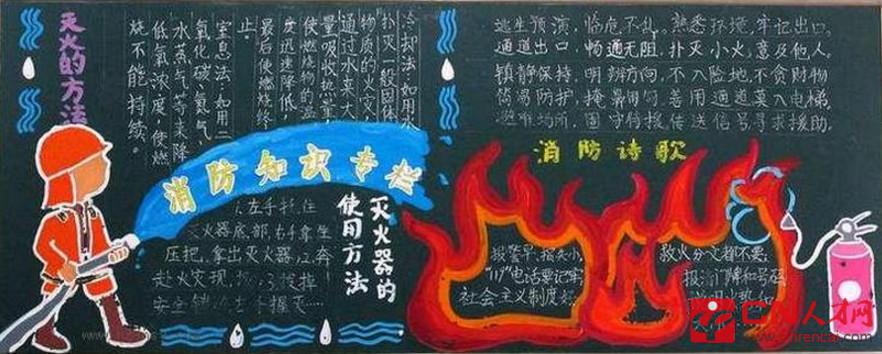 灭火的方法
冷却法：如用水
扑灭一般固体
物质的火灾，
通过水来大
量吸收热量，
使燃烧物的温
度迅速降低，
最后使燃烧终
止。
窒息法：如用二
氧化碳、氮气、
水蒸气等来降
低氧浓度，使燃
烧不能持续。
消防知识专栏
灭火器的
使用方法
灭火器底部，右手拿
压把，拿出灭火器
赴火实现
安全
逃生预演，临危不乱。熟悉环境，牢记出口。
通道出口，畅通无阻。扑灭小火，惠及他人。
镇静保持，明辨方向。不入险地，不贪财物
简易防护，掩鼻匍匐。善用通道莫入电梯。
避难场所，固守待援传送信号寻求援助。
消防诗歌
报警早，损失小，
"119"电话要记牢
社会主义制度好
救火分文都不要
报清门牌和号码
人才网
cnrencai.com